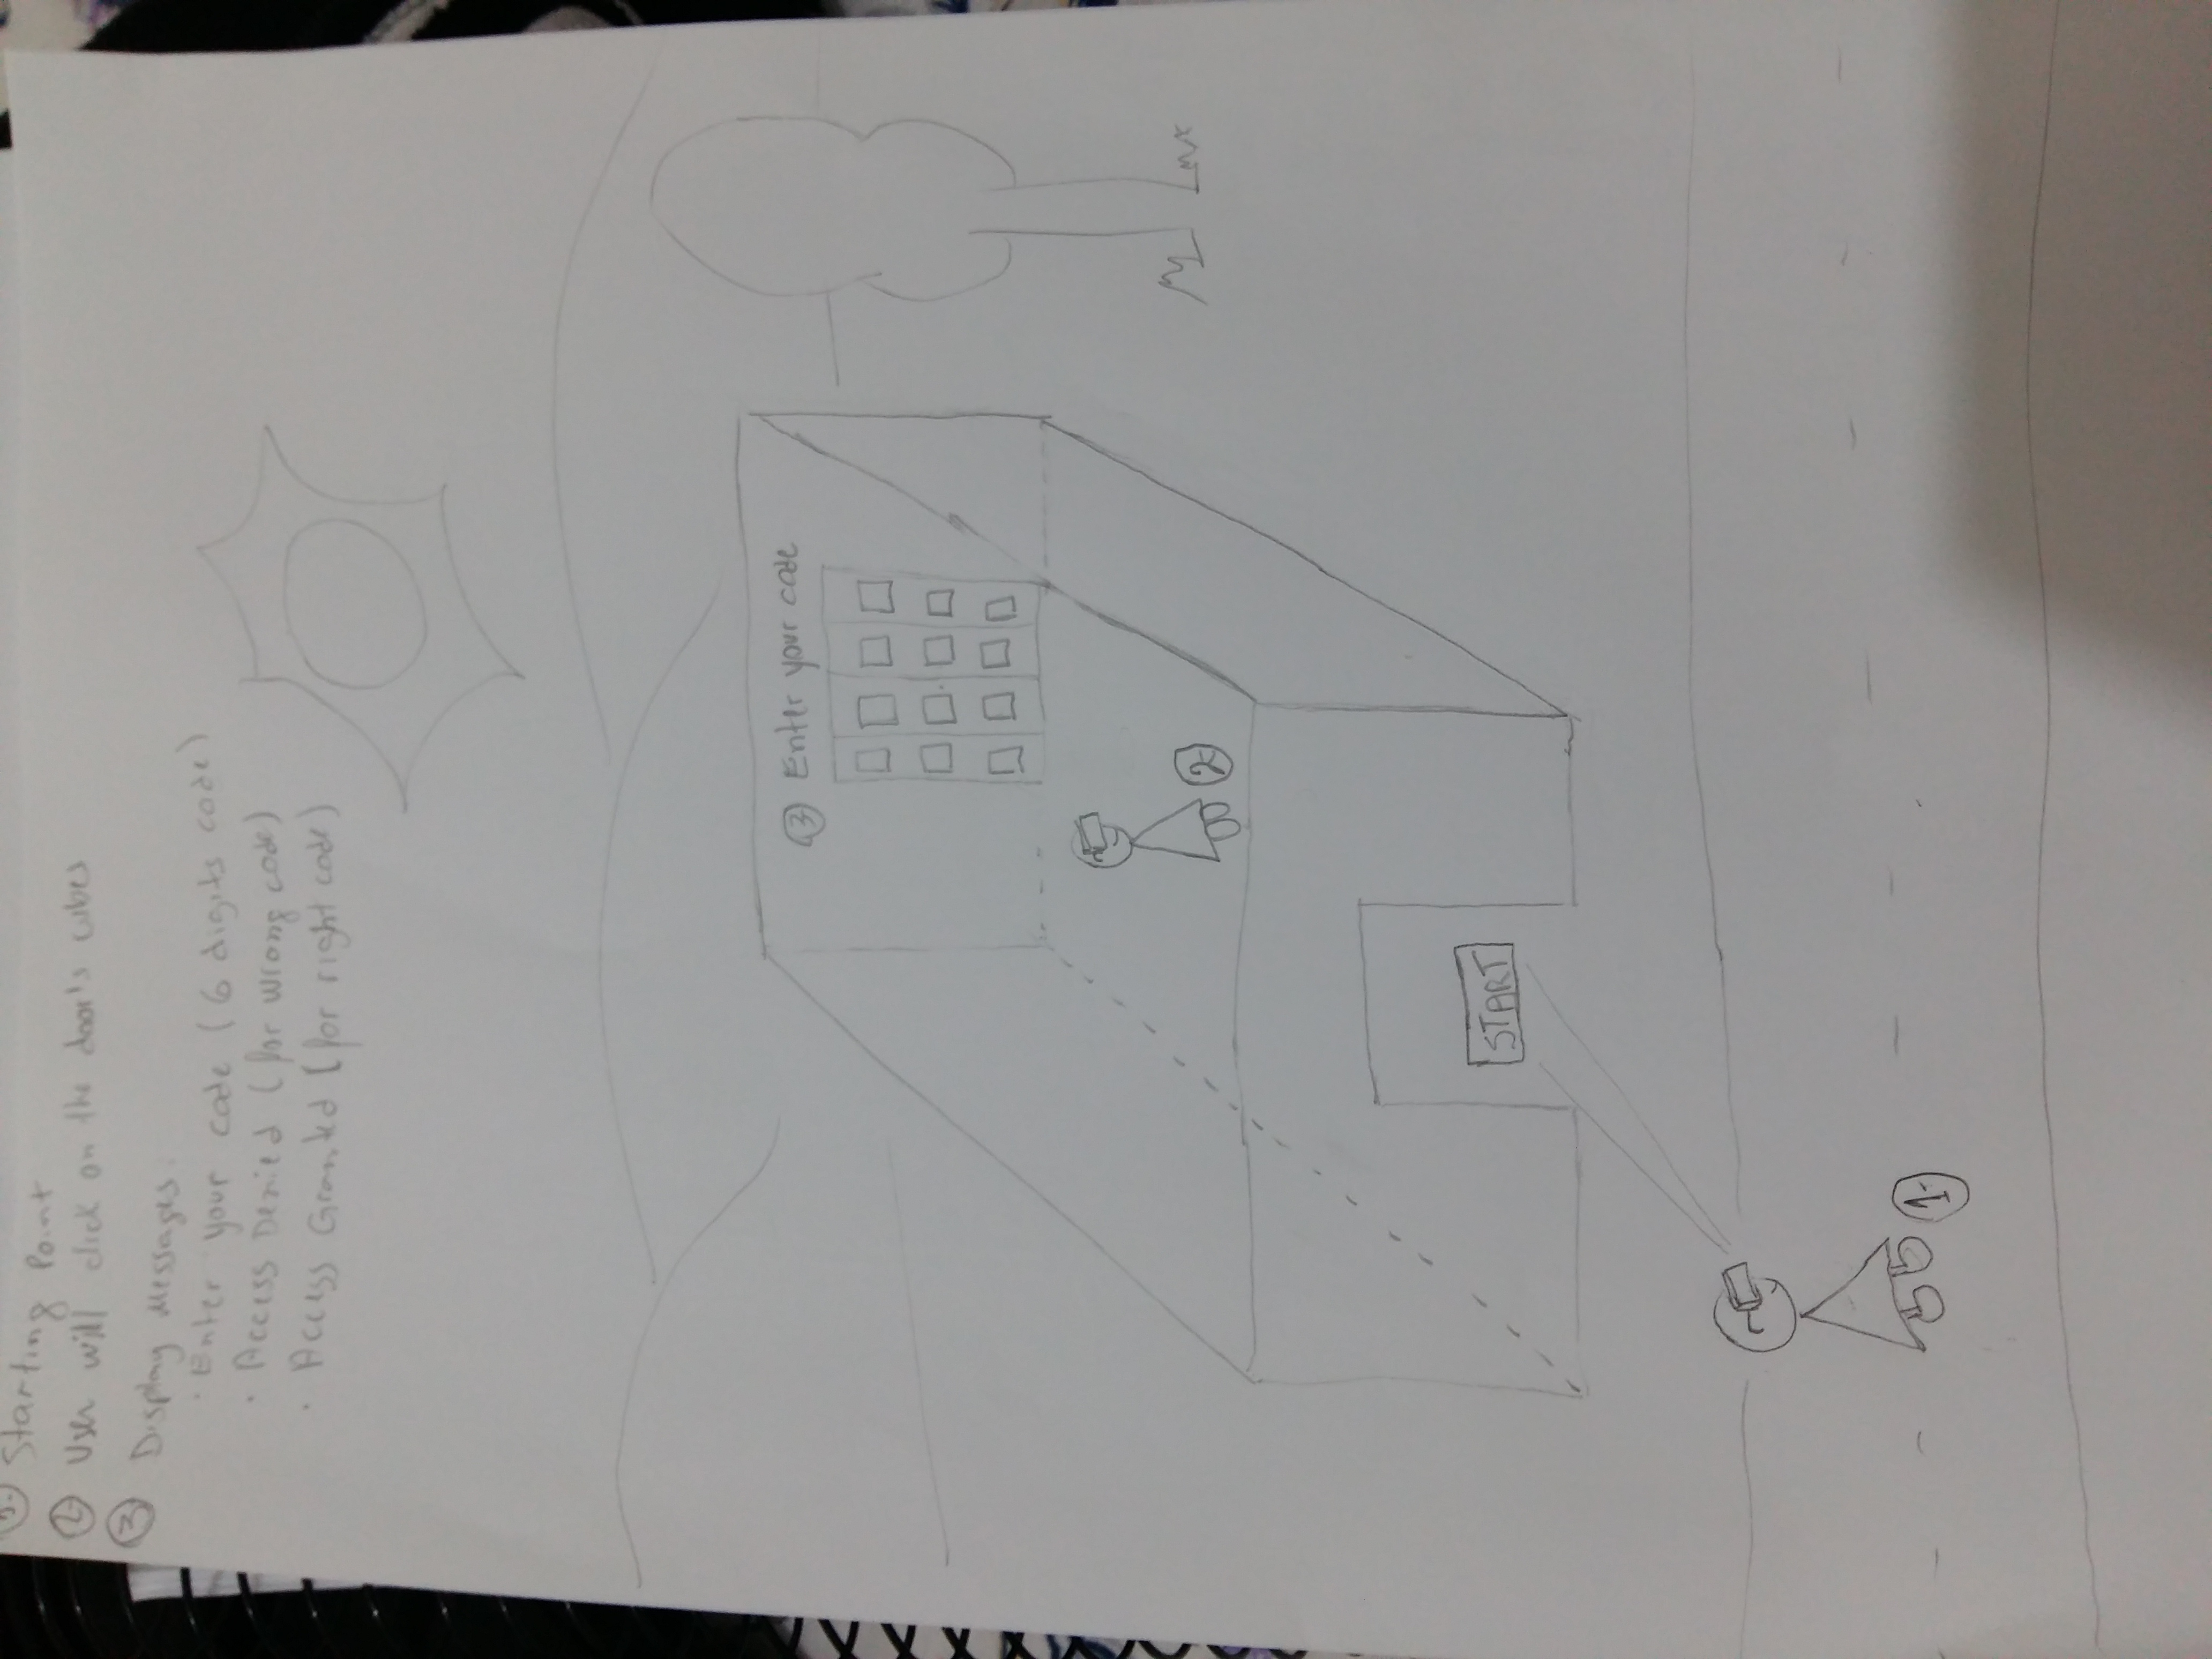 1- Starting Point
2- User will click on the door's cubes
3 Display Messages.
· Enter your code (6 digits code)
· Access Denied (for wrong code)
· Access Granted (for right code)
3- Enter your code
2-
START
1-